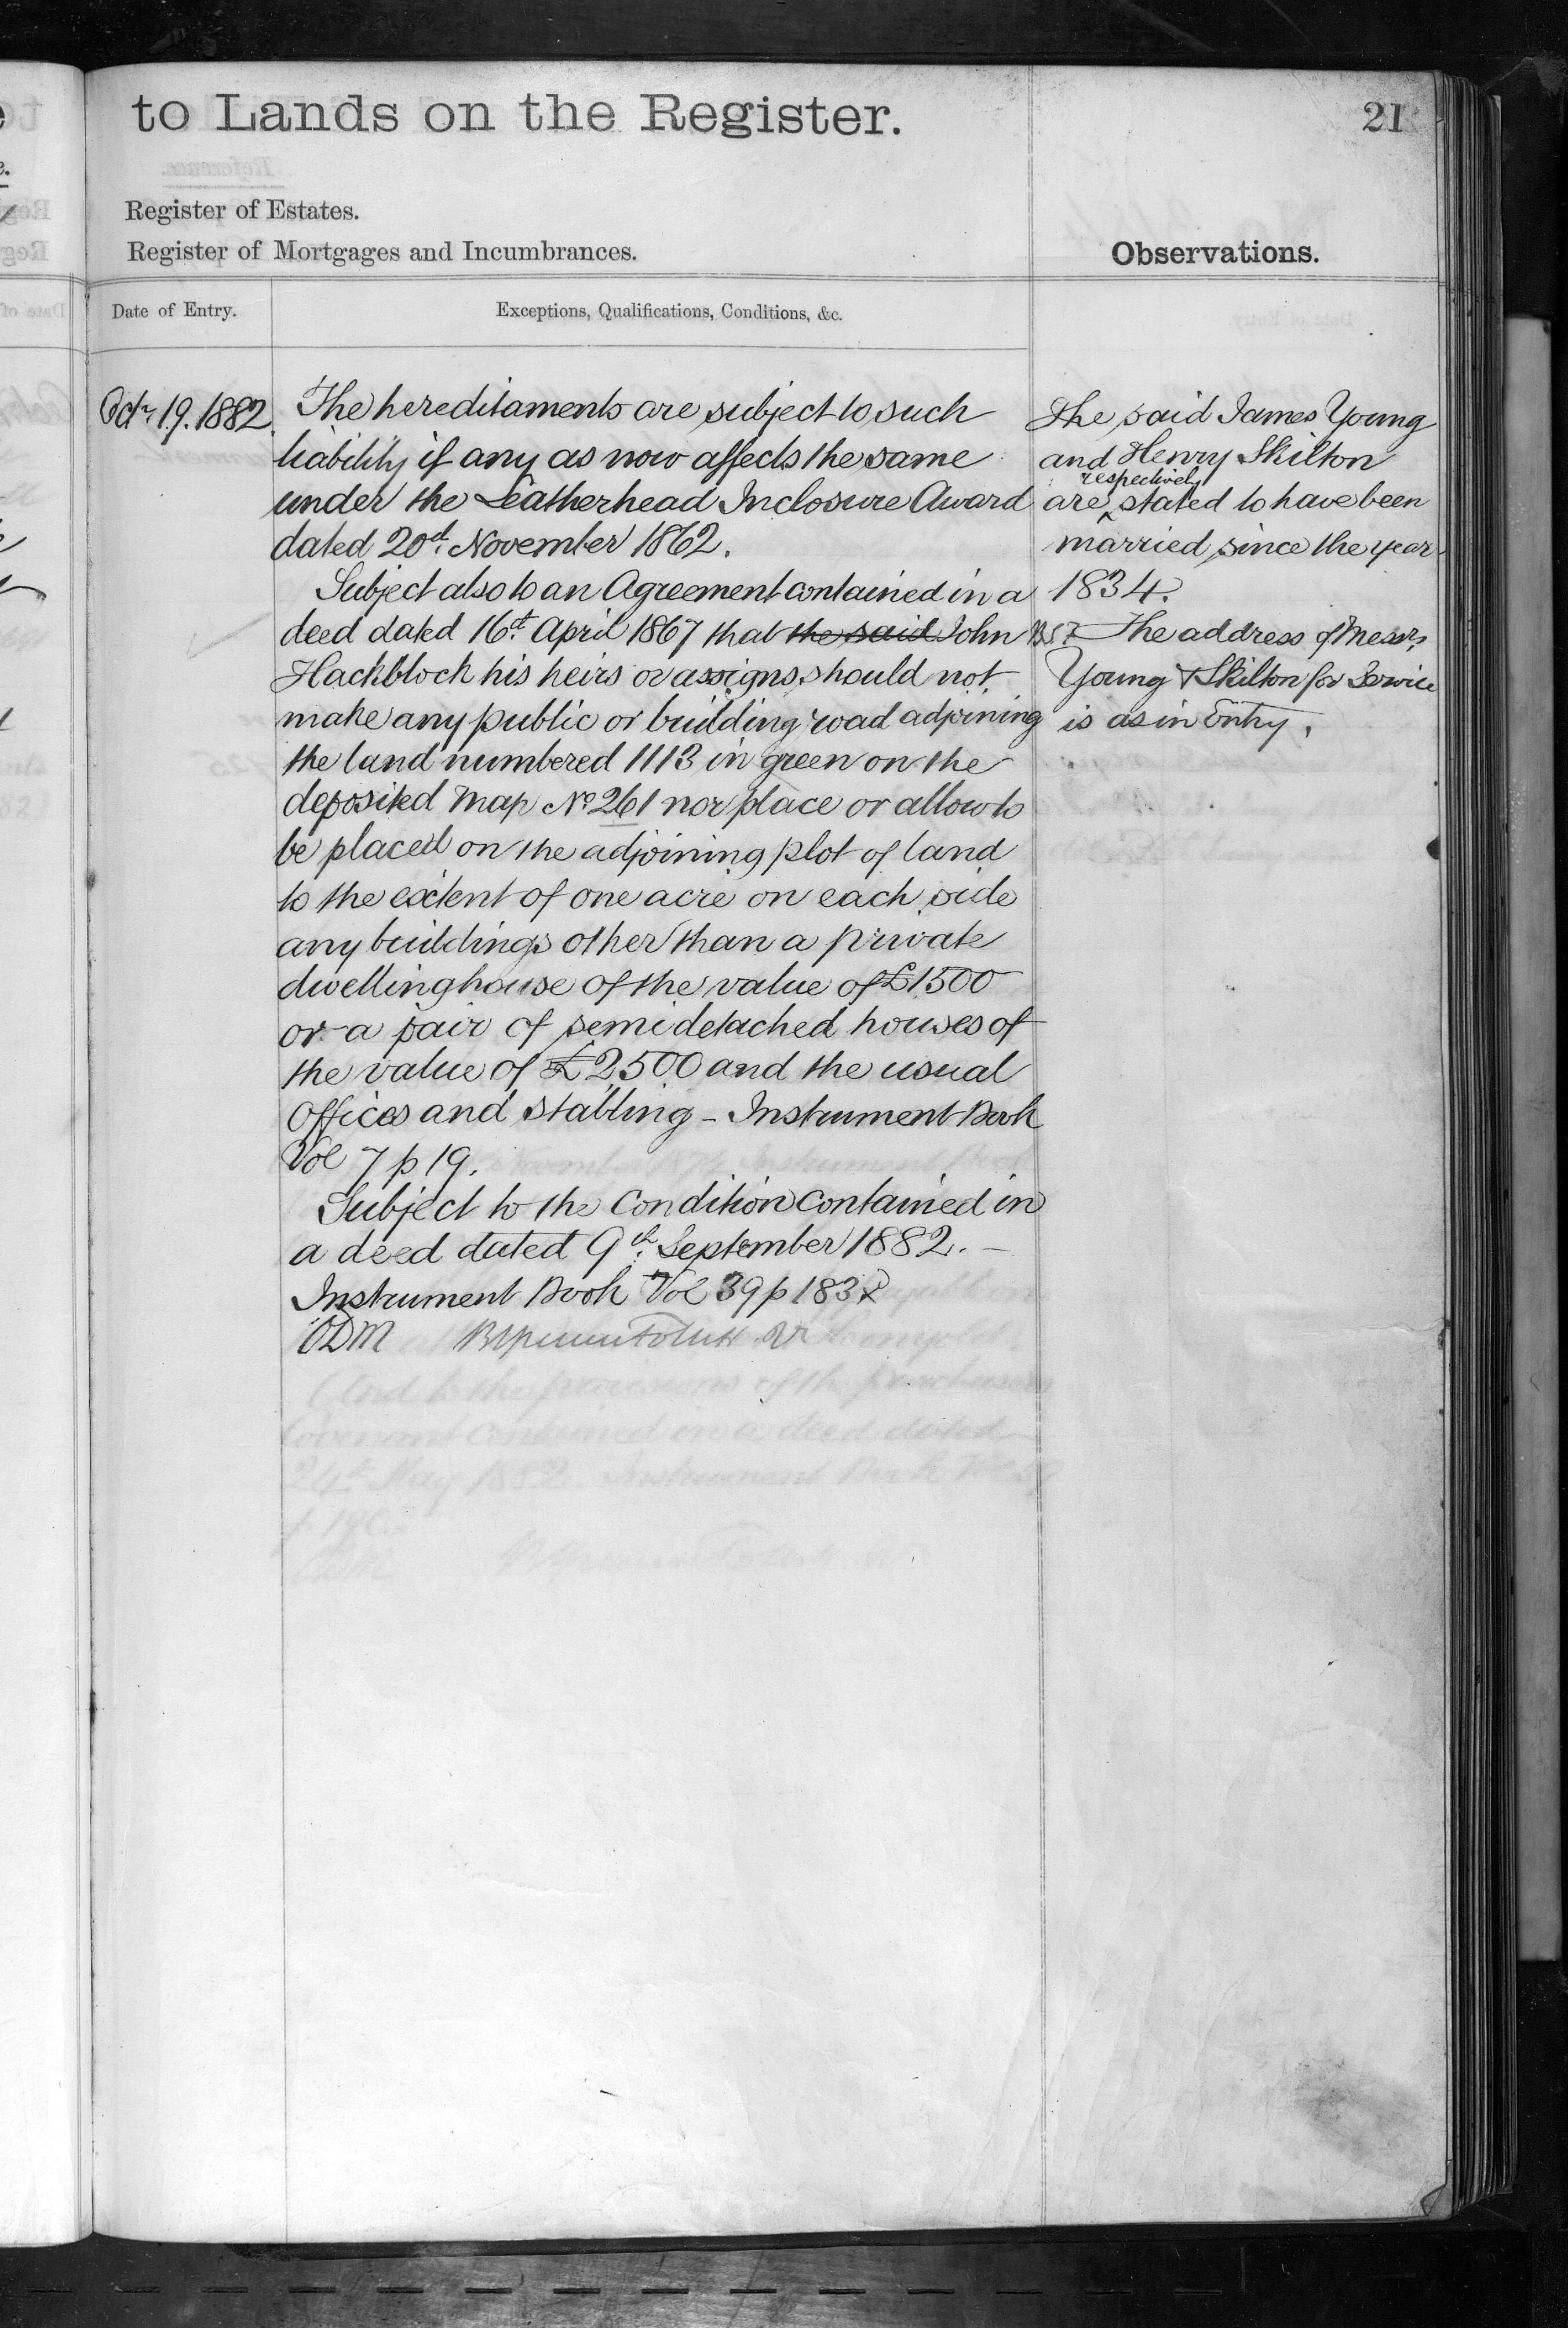 to Lands on the Register.
21
Register of Estates.
Register of Mortgages and Incumbrances.
Observations.
Date of Entry.
Exceptions, Qualifications, Conditions, &c.
Octr 19. 1882
The hereditaments are subject to such
liability if any as now affects the same
under the Leatherhead Inclosure Award
dated 20th November 1862.
Subject also to an Agreement contained in a
deed dated 16th April 1867 that the said John
Hackblock his heirs or assigns should not
make any public or building road adjoining
the land numbered 1113 in green on the
deposited Map No 261 nor place or allow to
be placed on the adjoining plot of land
to the extent of one acre on each side
any buildings other than a private
dwellinghouse of the value of £1500
or a pair of semi detached houses of
the value of £2500 and the usual
Offices and stabling - Instrument Book
Vol 7 p 19.
Subject to the Condition contained in
a deed dated 9th September 1882. -
Instrument Book Vol 39 p 183
The said James Young
and Henry Skilton
are respectively stated to have been
married since the year
1834.
The address of Messrs
Young & Skilton for Service
is as in Entry.